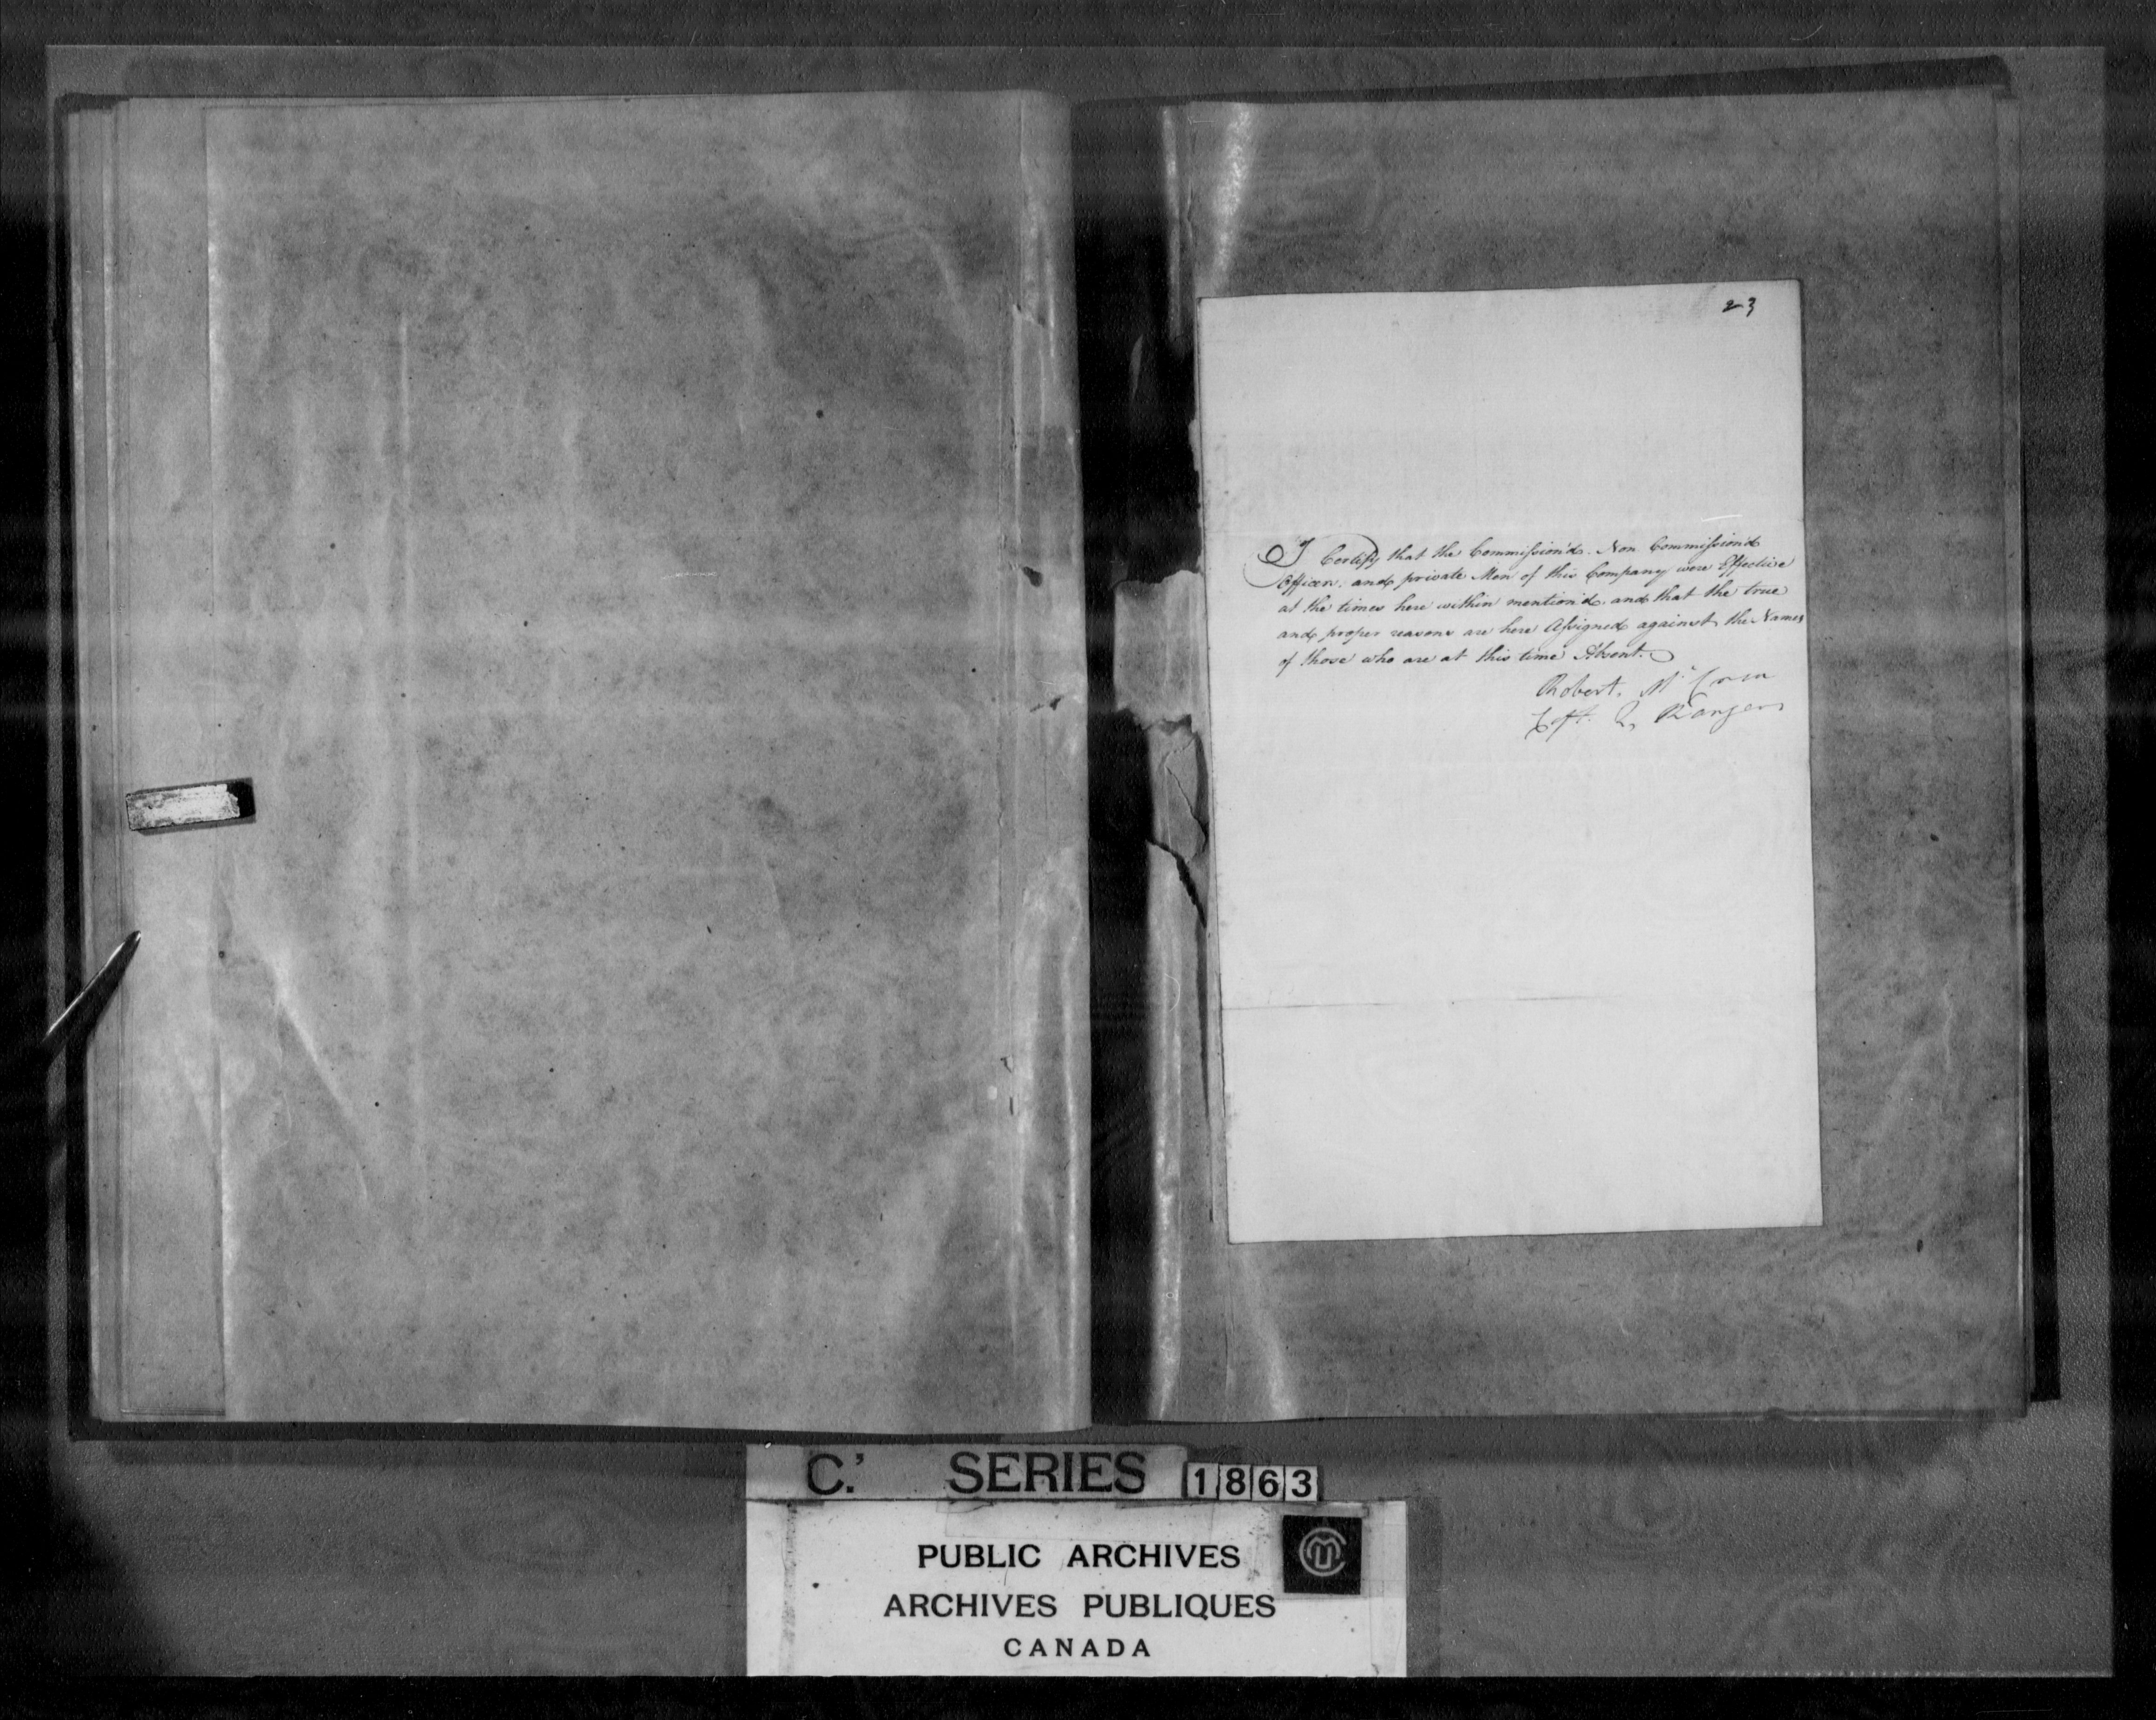 23
I Certify that the Commission'd. Non Commission'd
Officers. and private Men of this Company were Effective
at the times here within mention'd. and that the true
and proper reasons are here Assigned against the Names
of those who are at this time Absent.
Robert. Mc Crea
Cpt. Q. Rangers
C.' SERIES 1863
PUBLIC ARCHIVES
ARCHIVES PUBLIQUES
CANADA